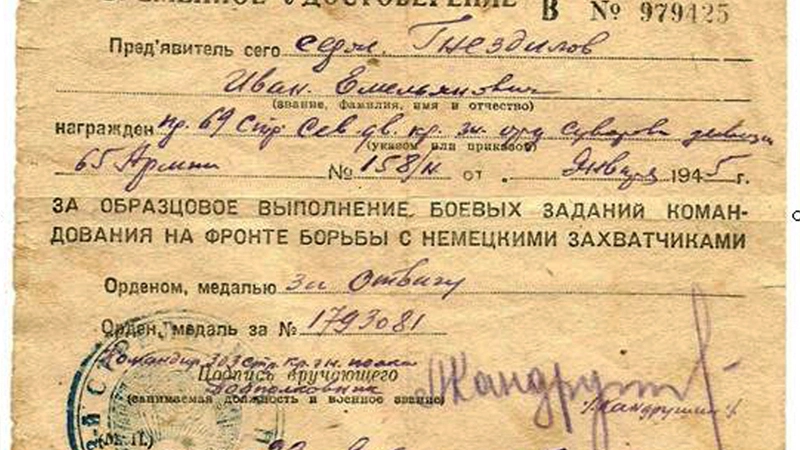 ВРЕМЕННОЕ УДОСТОВЕРЕНИЕ В № 979425
Пред'явитель сего серж. Гнездилов
Иван Емельянович
(звание, фамилия, имя и отчество)
награжден пр. 69 Стр Сев дв. кр. зн. орд Суворова дивизи
(указом или приказом)
65 Армии № 158/н от января 1945 г.
ЗА ОБРАЗЦОВОЕ ВЫПОЛНЕНИЕ БОЕВЫХ ЗАДАНИЙ КОМАН-
ДОВАНИЯ НА ФРОНТЕ БОРЬБЫ С НЕМЕЦКИМИ ЗАХВАТЧИКАМИ
Орденом, медалью за Отвагу
Орден, медаль за № 1793081
Командир 303 Стр. кр. зн. полка
Подпись вручающего
Подполковник
(занимаемая должность и военное звание)
(М. П.)